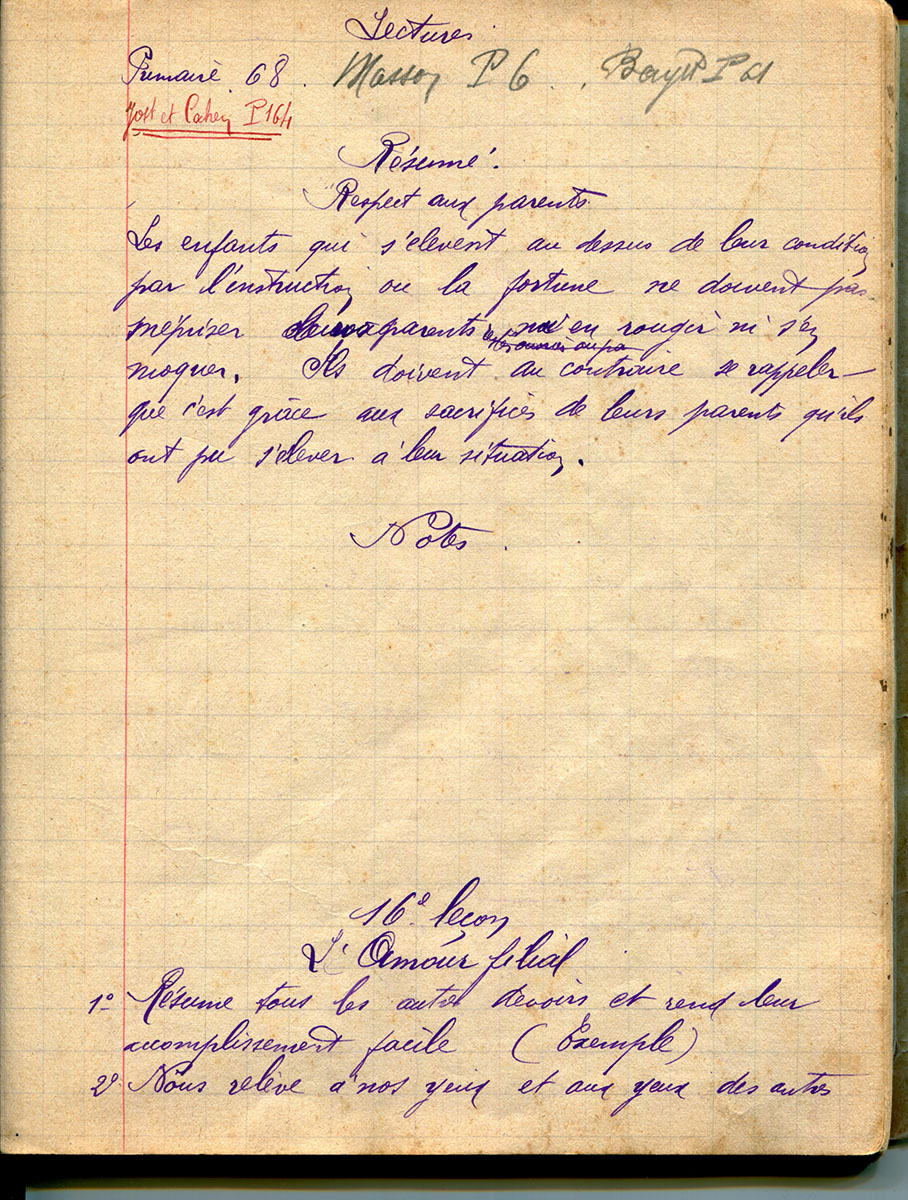 Lectures
Primaire 68. Masson P 6. Bayet P 61
Jost et Cahen P 164
Résumé.
Respect aux parents
Les enfants qui s'elèvent au dessus de leur condition
par l'instruction ou la fortune ne doivent pas
mépriser leurs parents ni en rougir ni s'en
moquer. Ils doivent au contraire se rappeler
que c'est grâce aux sacrifices de leurs parents qu'ils
ont pu s'élever à leur situation.
Notes.
16e leçon
L'Amour filial
1° Résume tous les autres devoirs et rend leur
accomplissement facile (Exemple)
2° Nous relève à nos yeux et aux yeux des autres